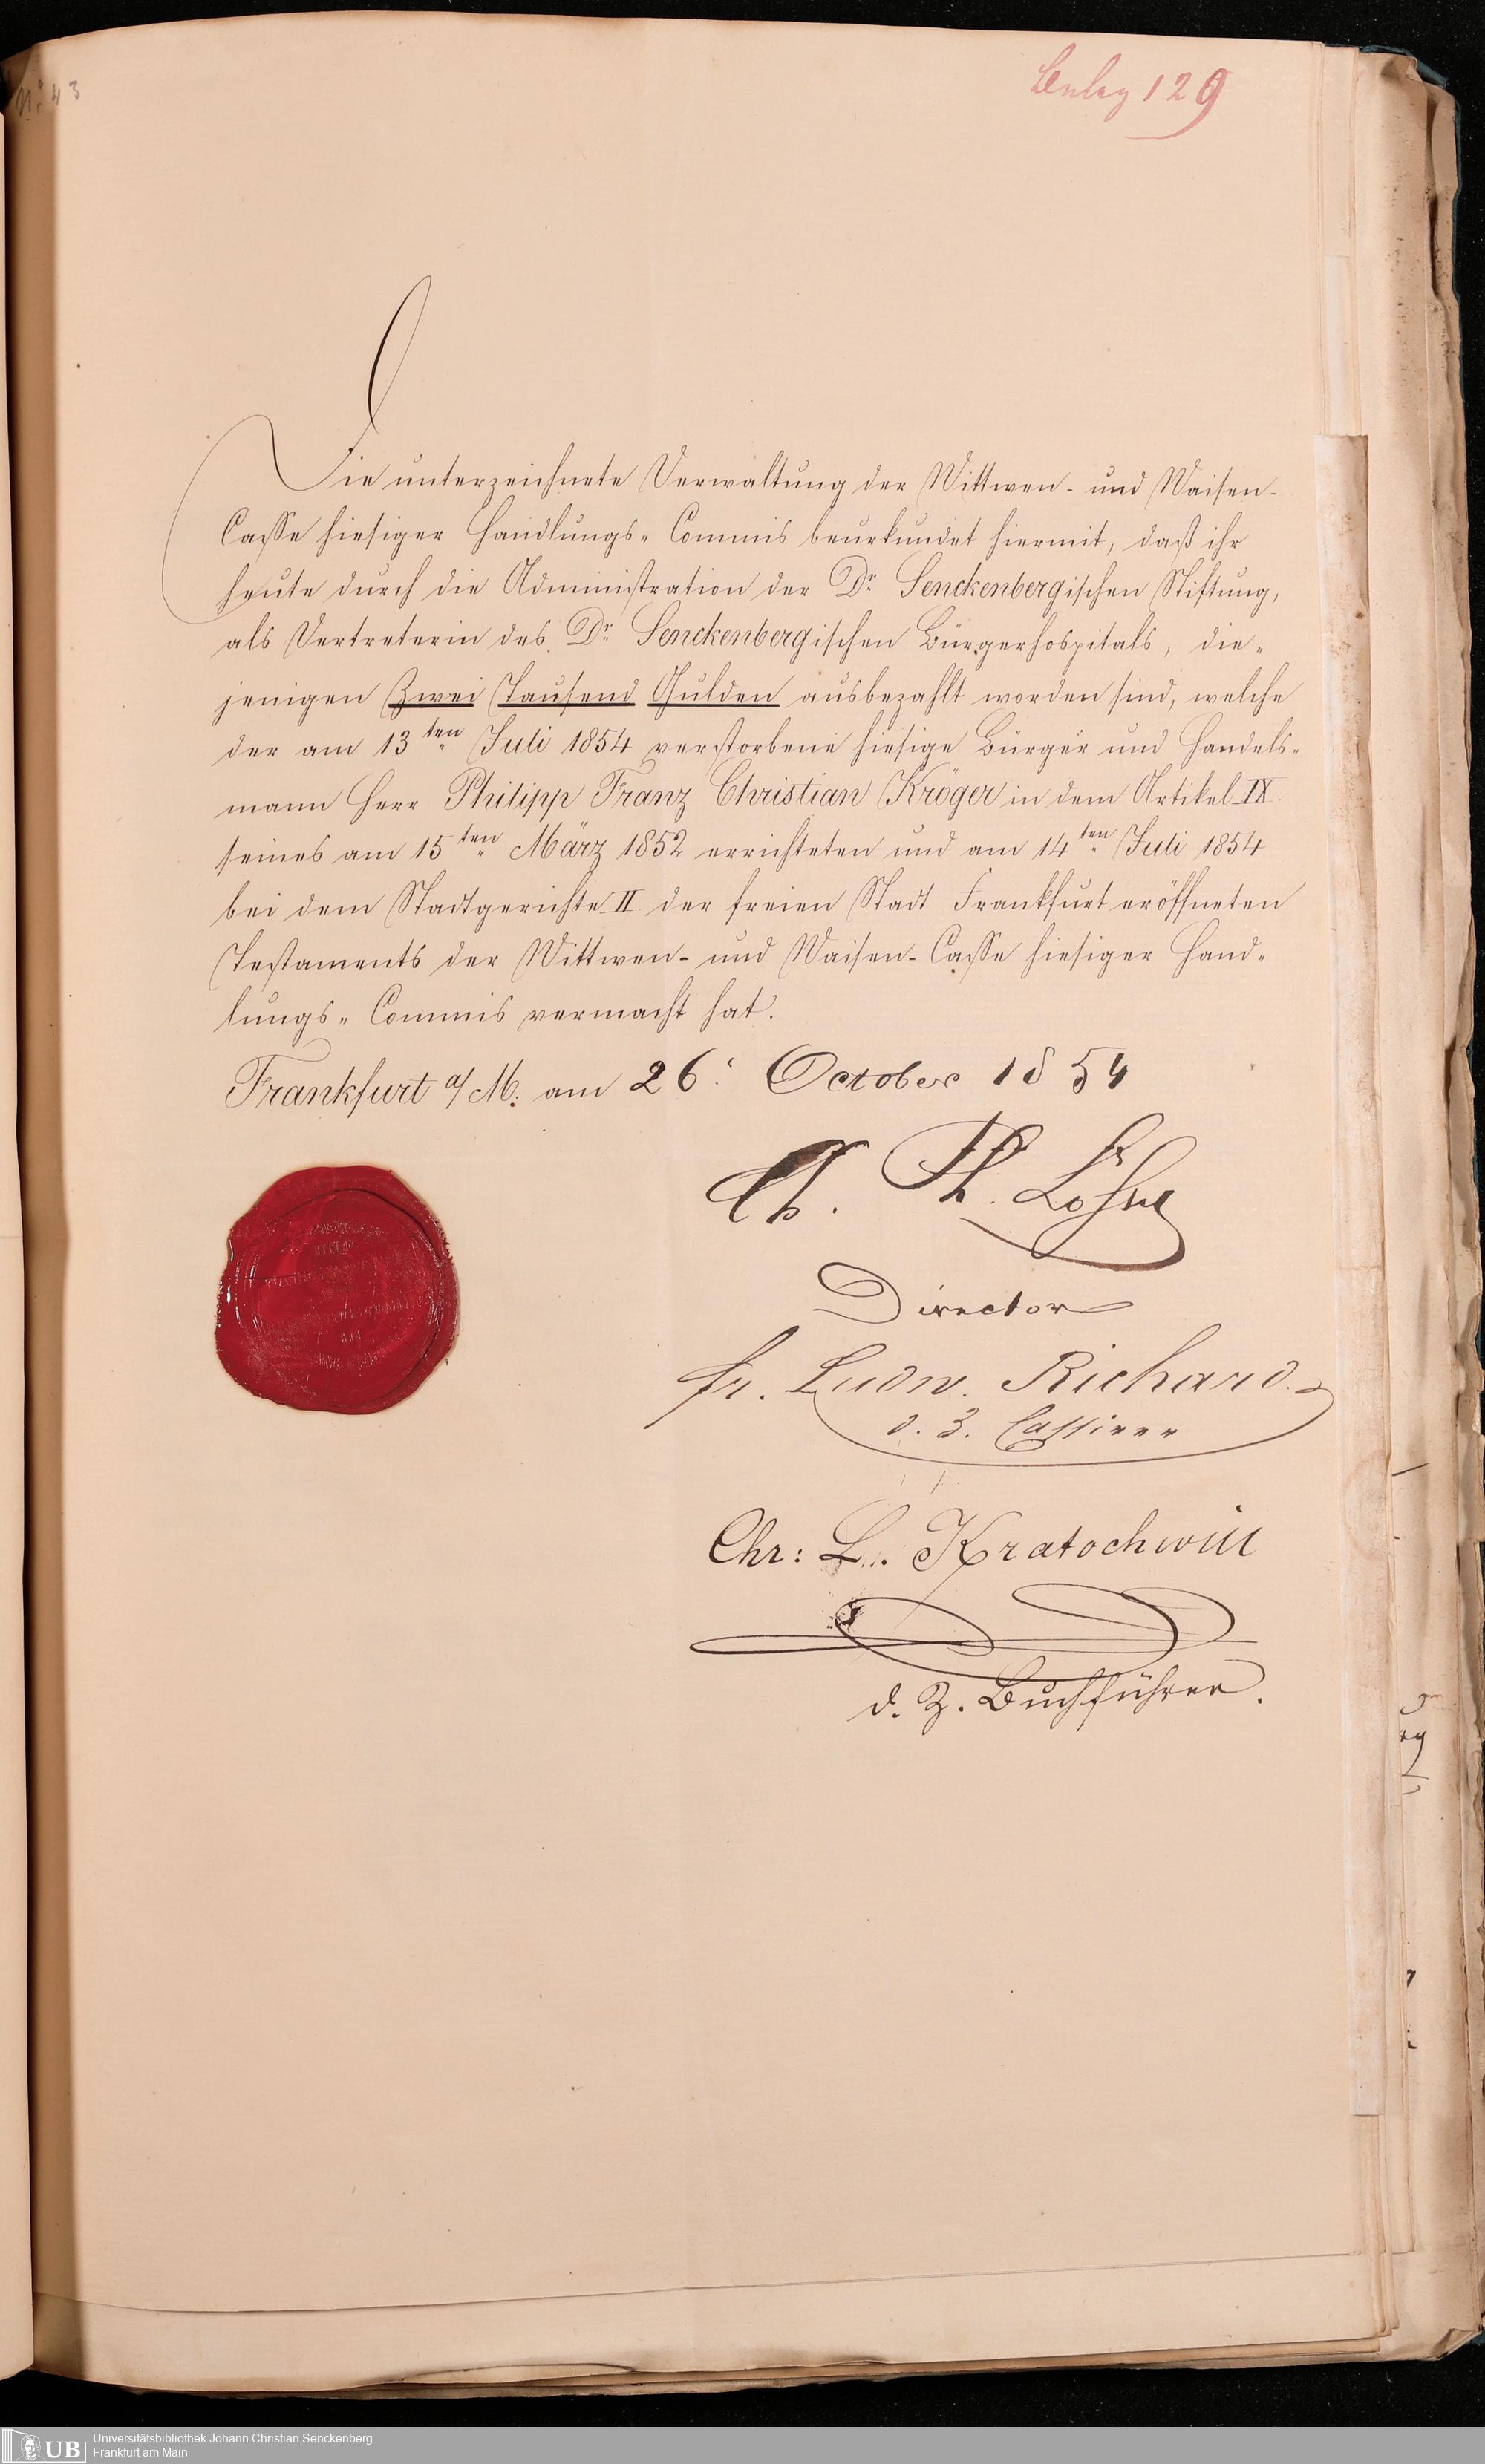 No. 43
Beulag 129
Die unterzeichnete Verwaltung der Wittwen- und Waisen-
Casse hiesiger Handlungs-Commis beurkundet hiermit, daß ihr
heute durch die Administration der Dr. Senckenbergischen Stiftung,
als Vertreterin des Dr. Senckenbergischen Bürgerhospitals, die-
jenigen Zwei Tausend Gulden ausbezahlt worden sind, welche
der am 13ten Juli 1854 verstorbene hiesige Bürger und Handels-
mann Herr Philipp Franz Christian Kröger in dem Artikel IX.
seines am 15ten März 1852 errichteten und am 14ten Juli 1854
bei dem Stadtgerichte II. der freien Stadt Frankfurt eröffneten
Testaments der Wittwen- und Waisen-Casse hiesiger Hand-
lungs-Commis vermacht hat.
Frankfurt a/M. am 26. October 1854
Director
Fr. Ludw. Richard.
d. Z. Cassirer
Chr: L. Kratochwill
d. Z. Buchführer.
UB Universitätsbibliothek Johann Christian Senckenberg
Frankfurt am Main